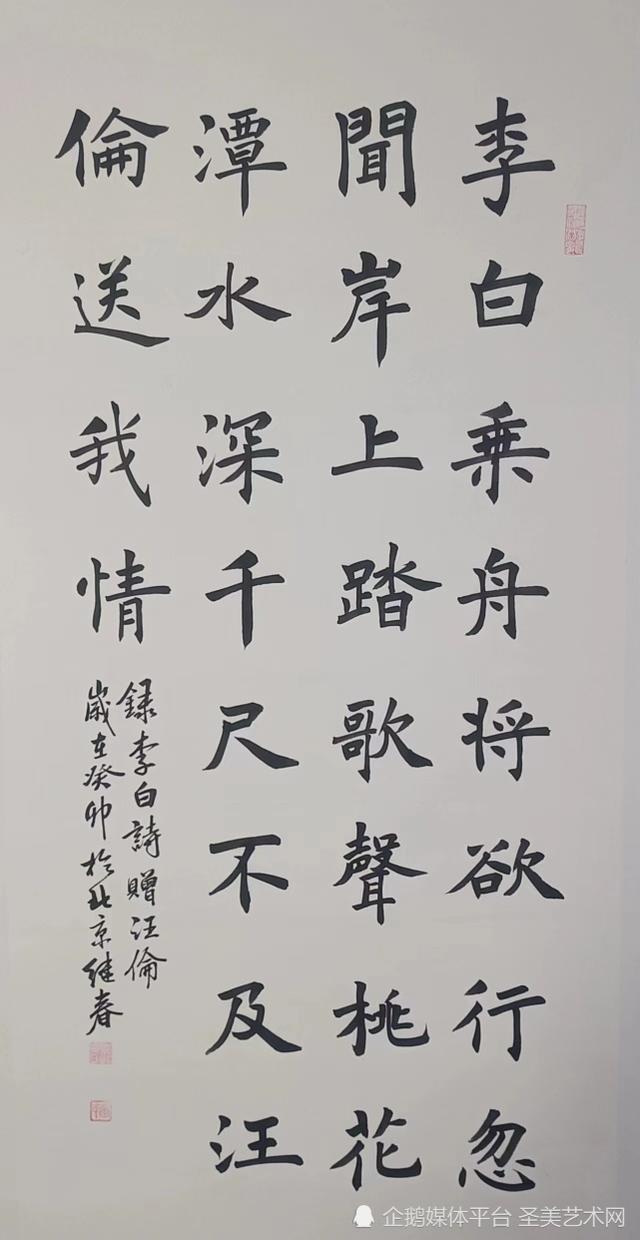 李白乗舟将欲行忽
聞岸上踏歌聲桃花
潭水深千尺不及汪
倫送我情
録李白詩贈汪倫
歲在癸卯於北京继春
企鹅媒体平台 圣美艺术网